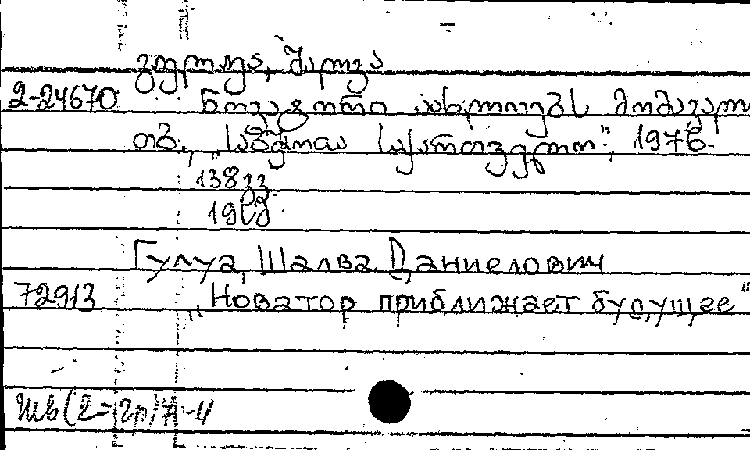 გულუა, შალვა
2-24670 ნოვატორი აახლოებს მომავალ
თბ., „საბჭოთა საქართველო", 1976.
138 გვ.
19 სმ.
Гулуа, Шалва Даниелович
72913 „Новатор приближает будущее"